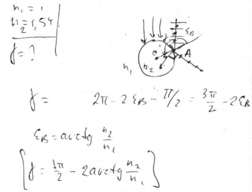 n₁ = 1
n₂ = 1,54
γ = ?
εB
A
n₁
n₂
γ = 2π - 2εB - π/2 = 3π/2 - 2εB
εB = arctg n₂/n₁
[γ = 3π/2 - 2arctg n₂/n₁]